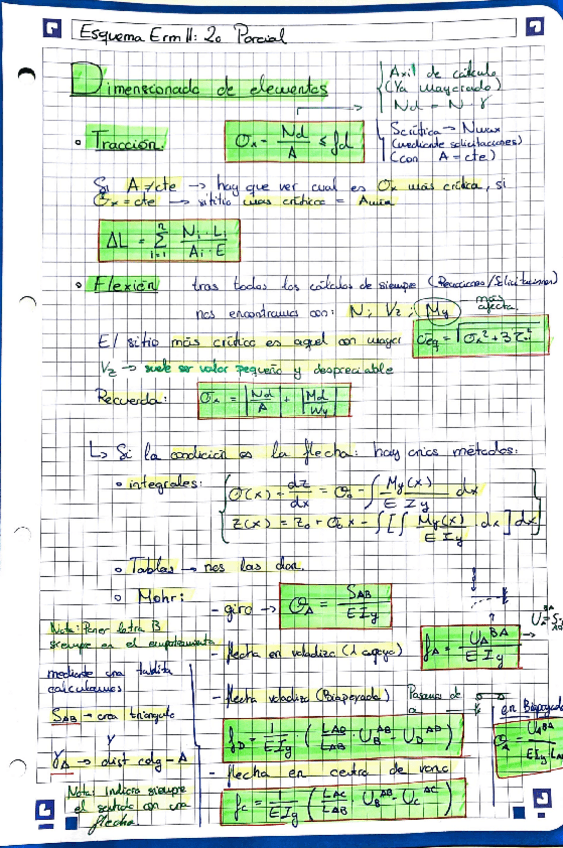 Esquema Erm II: 2o Parcial
Dimensionado de elementos
Axil de cálculo
(Ya mayorado)
Nd = N · γ
• Tracción:
σx = Nd / A ≤ fd
S crítica → Nmax
(mediante solicitaciones)
(con A = cte)
Si A ≠ cte → hay que ver cual es σx más crítica, si
σx = cte → sitio más crítico = Amin
ΔL = Σ i=1 n Ni · Li / Ai · E
• Flexión tras todos los cálculos de siempre (Reacciones/Solicitaciones)
nos encontramos con: N; Vz; My más afecta.
El sitio más crítico es aquel con mayor σeq = √σx² + 3τ²
Vz → suele ser valor pequeño y despreciable
Recuerda: σx = |Nd / A| + |Md / Wy|
↳ Si la condición es la flecha: hay varios métodos:
• integrales: θ(x) = dz / dx = θo - ∫ My(x) / E Iy dx
z(x) = zo + θo x - ∫ [∫ My(x) / E Iy · dx] dx
• Tablas → nos las dan.
• Mohr:
- giro → θA = SAB / E Iy
Nota: Poner letra B
siempre en el empotramiento
- flecha en voladizo (1 apoyo) fA = UA BA / E Iy
mediante una tablita
calculamos
SAB → area triangulo
y
γA → dist cdg - A
- flecha voladizo (Biapoyada) Pasamos de
a
en Biapoyada
θA = UABA / E Iy LAB
fD = 1 / E Iy · (LAD / LAB · UB AB - UD AD)
- flecha en centro de vano
fc = 1 / E Iy (LAC / LAB · UB AB - UC AC)
Nota: Indicra siempre
el sentido con una
flecha.